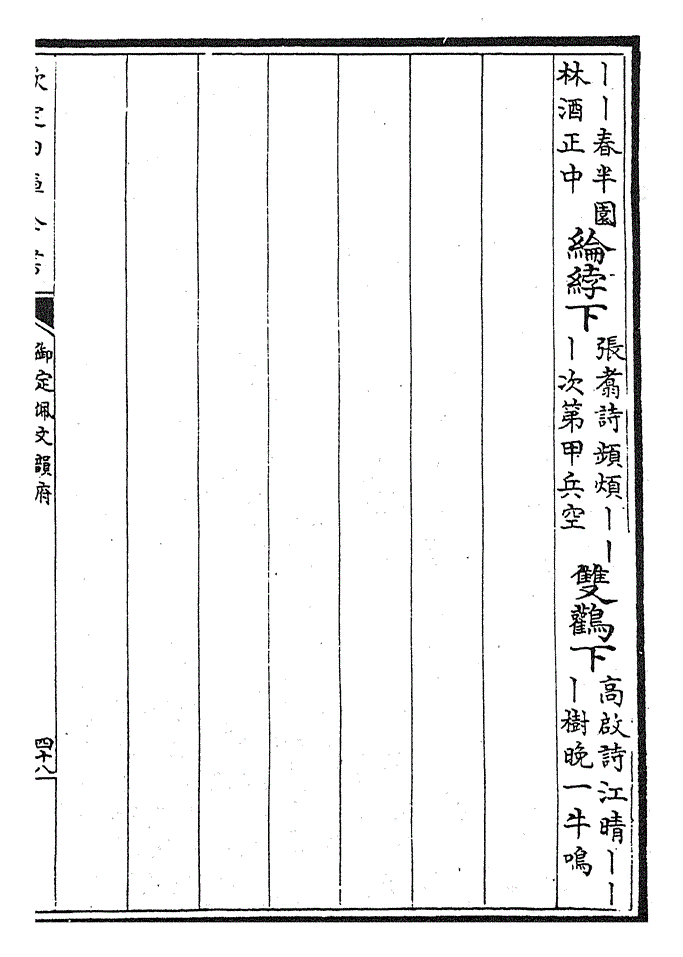 丨丨春半園
林酒正中
綸綍下
張翥詩頻煩丨丨
丨次第甲兵空
雙鸛下
高啟詩江晴丨丨
丨樹晚一牛鳴
欽定四庫全書
御定佩文韻府
四十八